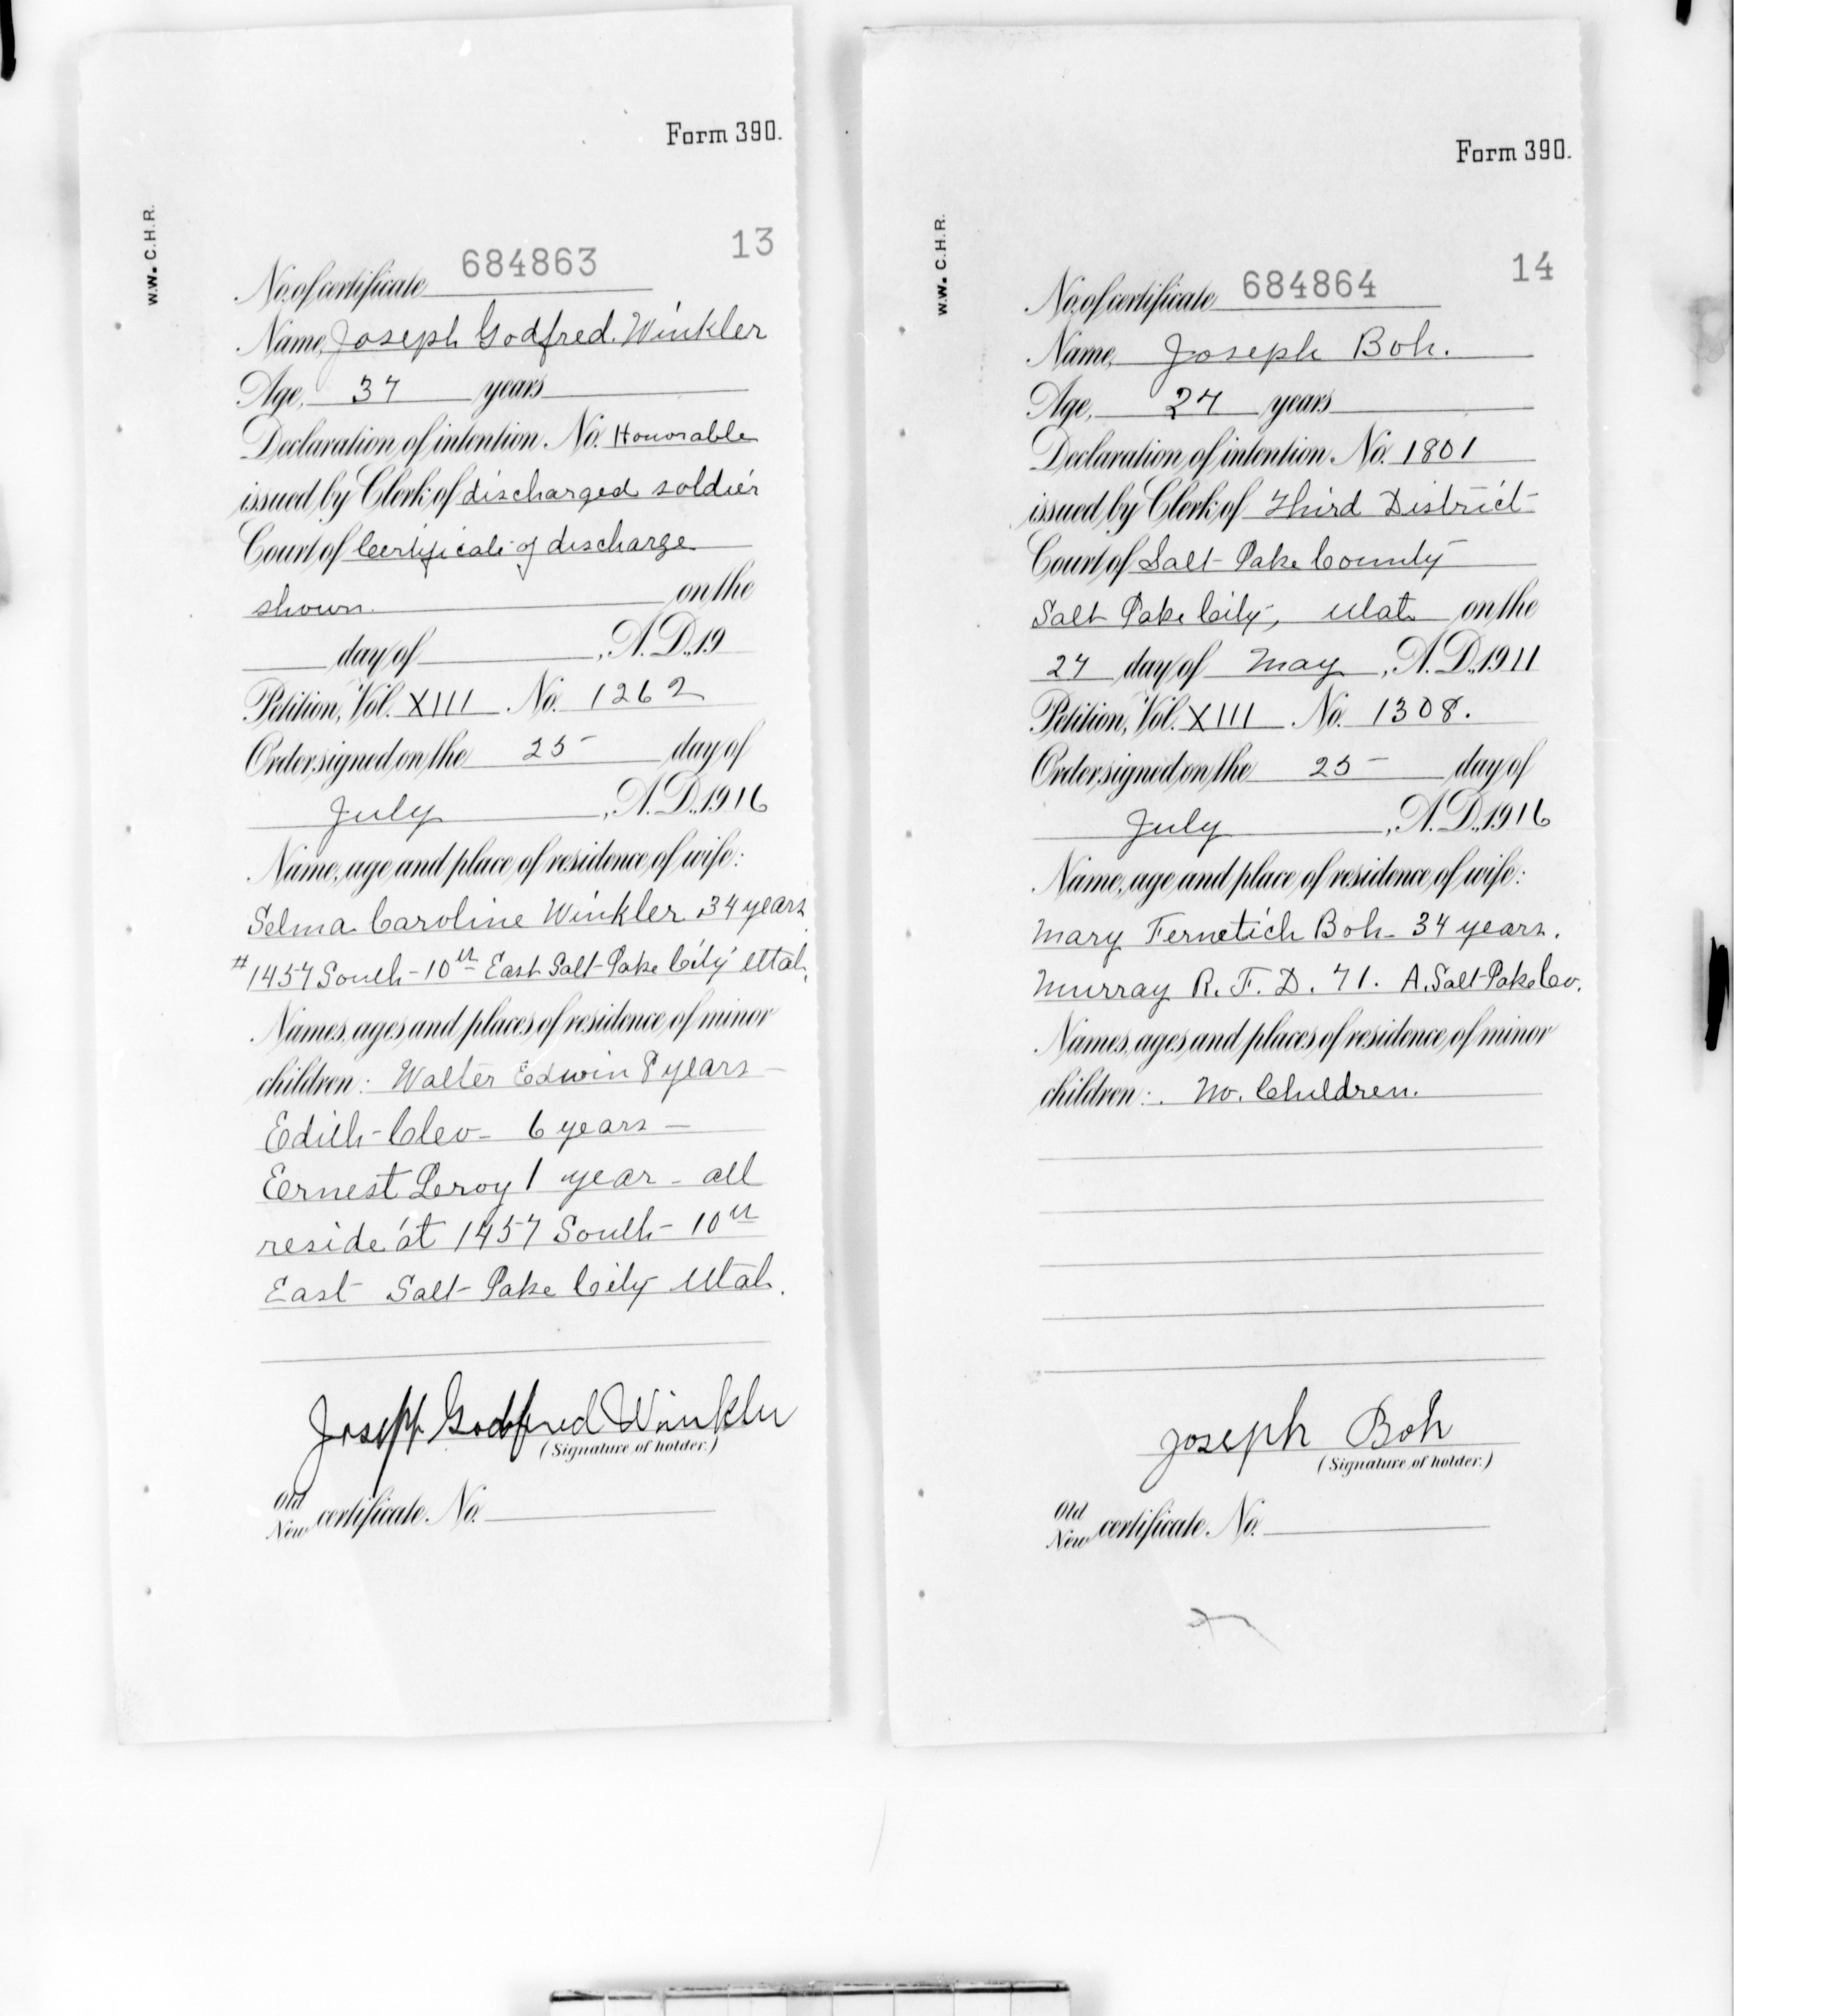 Form 390.
W.W. C.H.R.
13
No. of certificate 684863
Name, Joseph Godfred. Winkler
Age, 37 years
Declaration of intention No. Honorable
issued by Clerk of discharged soldier
Court of Certificate of discharge
shown. on the
day of , A.D. 19
Petition, Vol. XIII No. 1262
Order signed on the 25 day of
July , A.D. 1916
Name, age and place of residence of wife:
Selma Caroline Winkler 34 years
#1457 South - 10th East Salt Lake City Utah.
Names, ages and places of residence of minor
children: Walter Edwin 8 years -
Edith - Cleo - 6 years -
Ernest Leroy 1 year - all
reside at 1457 South - 10th
East Salt Lake City Utah.
Joseph Godfred Winkler
(Signature of holder.)
Old
New certificate No.
Form 390.
W.W. C.H.R.
14
No. of certificate 684864
Name, Joseph Boh.
Age, 27 years
Declaration of intention No. 1801
issued by Clerk of Third District
Court of Salt Lake County
Salt Lake City, Utah on the
27 day of May , A.D. 1911
Petition, Vol. XIII No. 1308.
Order signed on the 25 day of
July , A.D. 1916
Name, age and place of residence of wife:
Mary Fernetich Boh - 34 years.
Murray R.F.D. 71. A. Salt Lake Co.
Names, ages and places of residence of minor
children: . No. Children.
Joseph Boh
(Signature of holder.)
Old
New certificate No.